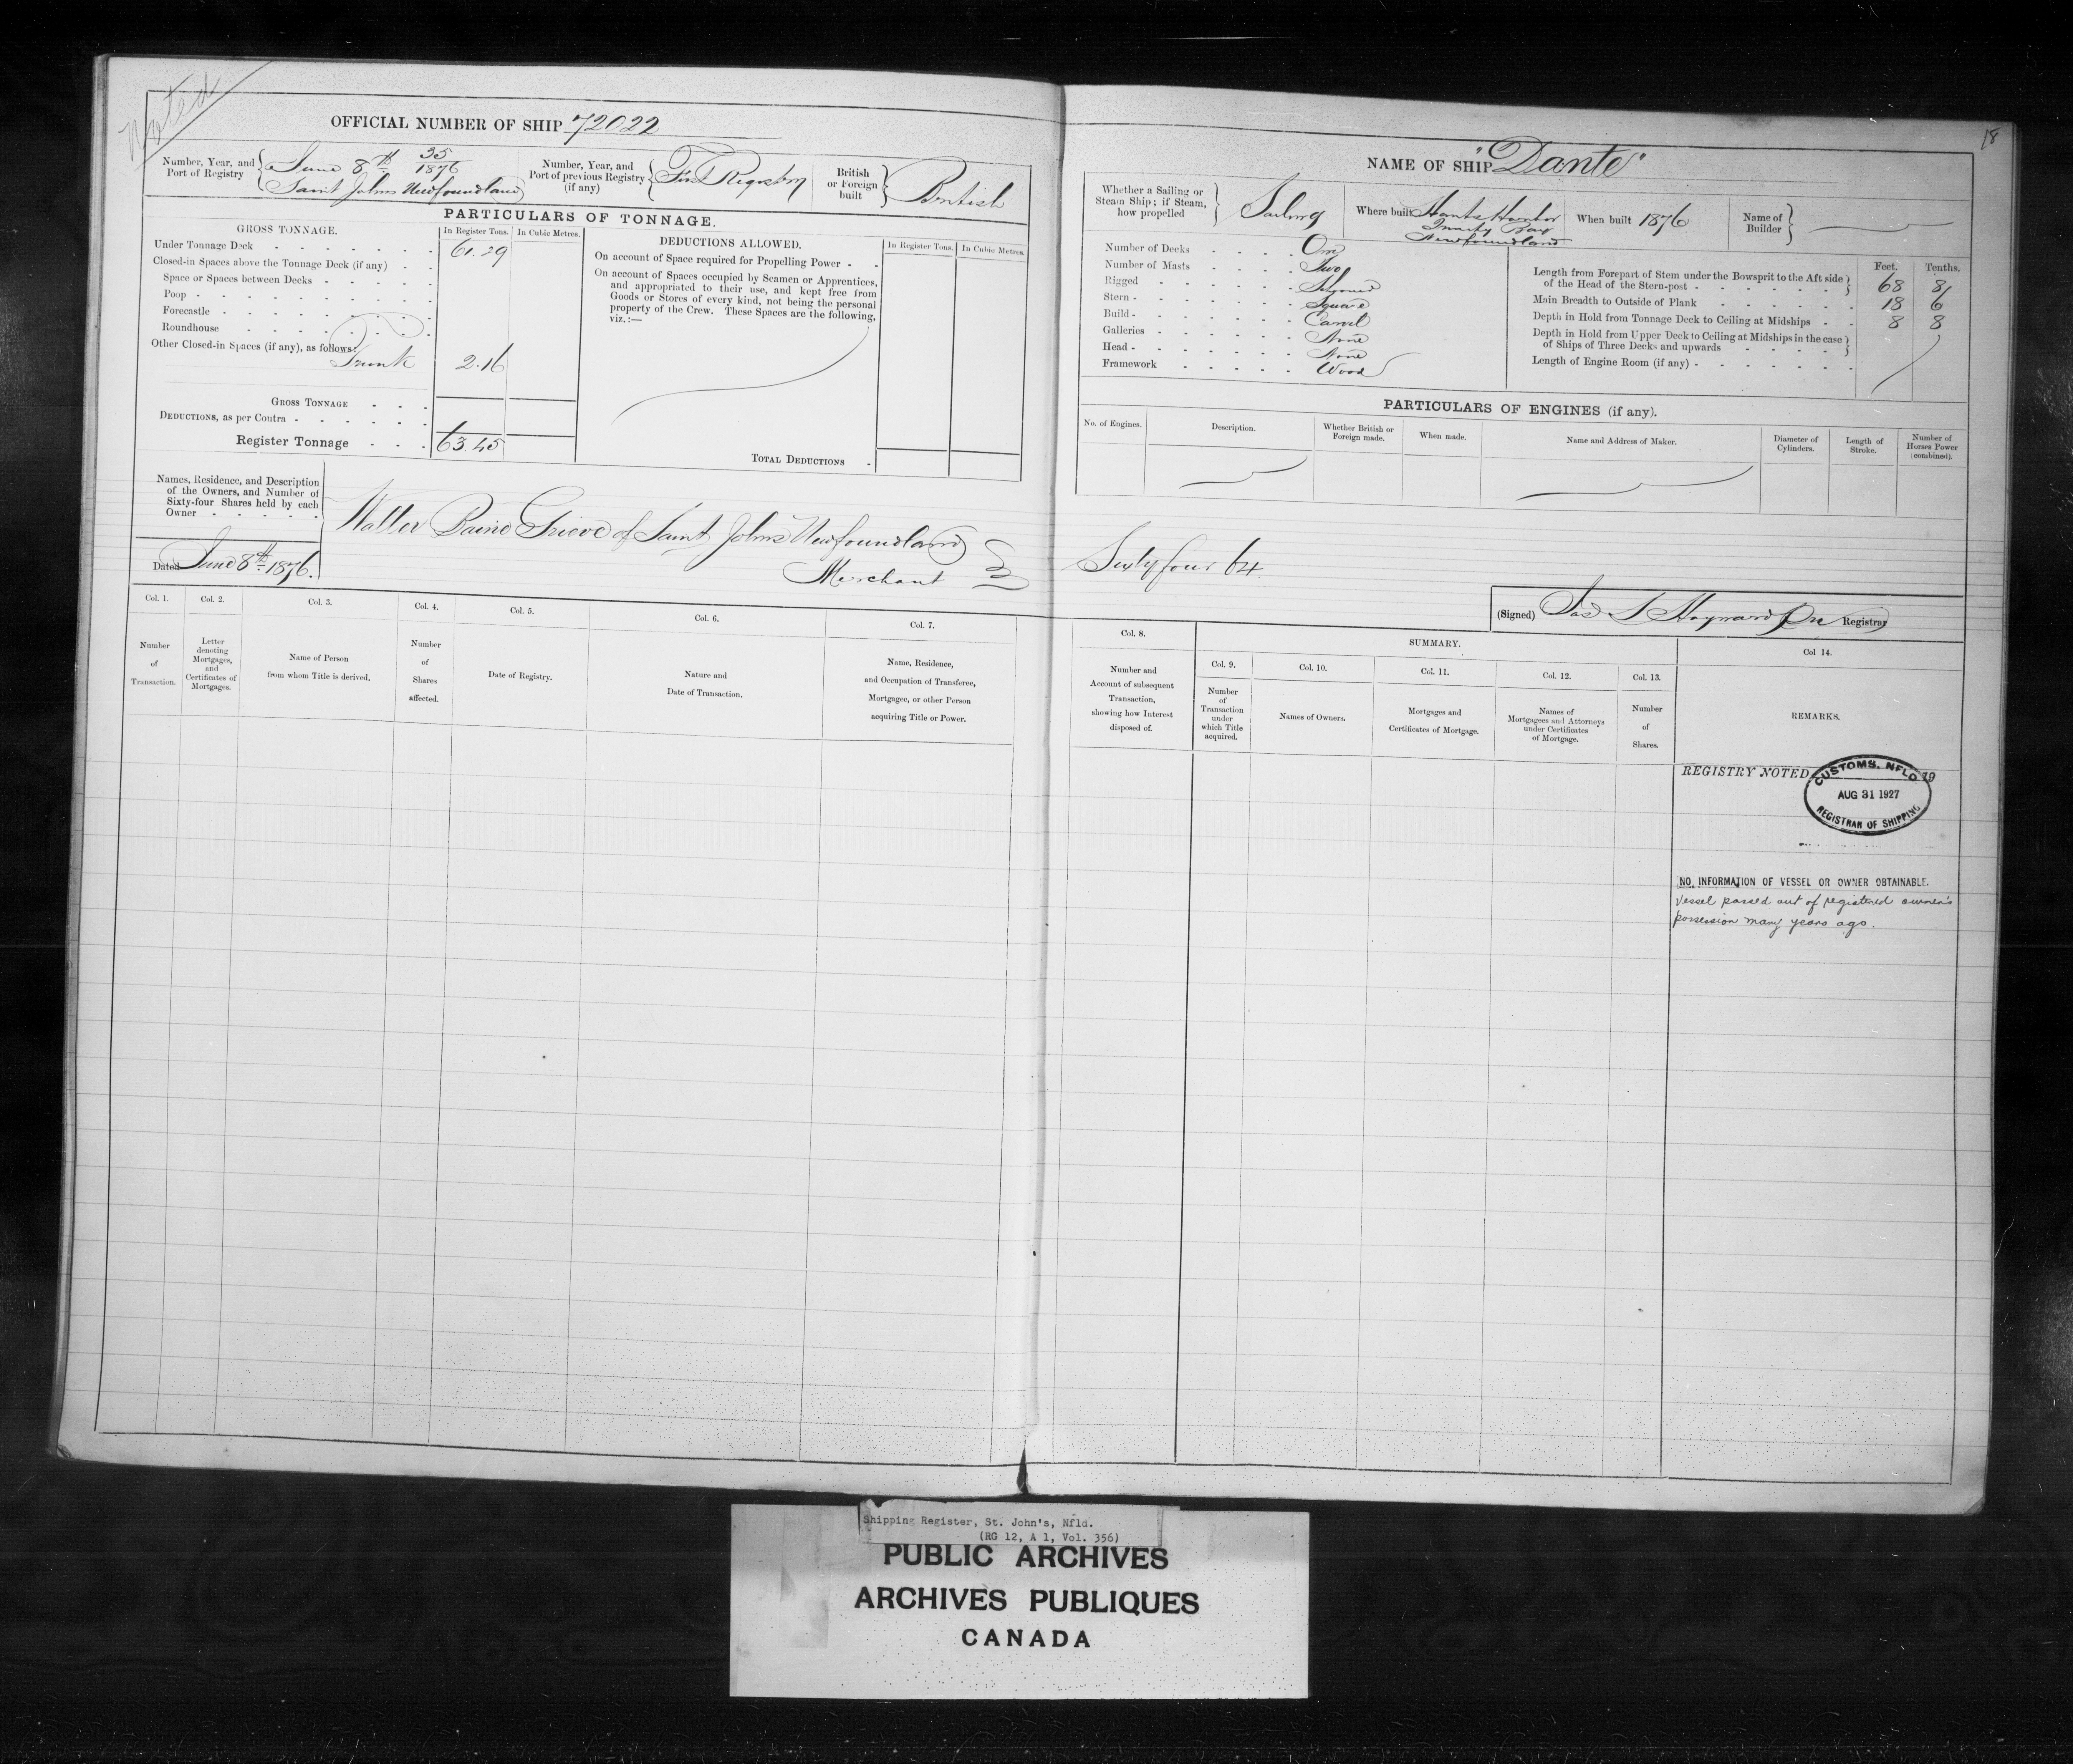 Noted
OFFICIAL NUMBER OF SHIP 72022
Number, Year, and Port of Registry
June 8th 35/1876
Saint Johns Newfoundland
Number, Year, and Port of previous Registry (if any)
First Registry
British or Foreign built
British
PARTICULARS OF TONNAGE.
GROSS TONNAGE.
In Register Tons.
In Cubic Metres.
Under Tonnage Deck 61.29
Closed-in Spaces above the Tonnage Deck (if any)
Space or Spaces between Decks
Poop
Forecastle
Roundhouse
Other Closed-in Spaces (if any), as follows:
Trunk 2.16
GROSS TONNAGE
DEDUCTIONS, as per Contra
Register Tonnage 63.45
DEDUCTIONS ALLOWED.
In Register Tons.
In Cubic Metres.
On account of Space required for Propelling Power
On account of Spaces occupied by Seamen or Apprentices,
and appropriated to their use, and kept free from
Goods or Stores of every kind, not being the personal
property of the Crew. These Spaces are the following,
viz.:—
TOTAL DEDUCTIONS
Names, Residence, and Description
of the Owners, and Number of
Sixty-four Shares held by each
Owner
Dated June 8th 1876.
Walter Baine Grieve of Saint Johns Newfoundland
Merchant
Col. 1.
Number
of
Transaction.
Col. 2.
Letter
denoting
Mortgages,
and
Certificates of
Mortgages.
Col. 3.
Name of Person
from whom Title is derived.
Col. 4.
Number
of
Shares
affected.
Col. 5.
Date of Registry.
Col. 6.
Nature and
Date of Transaction.
Col. 7.
Name, Residence,
and Occupation of Transferee,
Mortgagee, or other Person
acquiring Title or Power.
18
NAME OF SHIP "Dante"
Whether a Sailing or
Steam Ship; if Steam,
how propelled
Sailing
Where built Hants Harbor
Trinity Bay
Newfoundland
When built 1876
Name of
Builder
Number of Decks One
Number of Masts Two
Rigged Schooner
Stern Square
Build Carvel
Galleries None
Head None
Framework Wood
Feet. Tenths.
Length from Forepart of Stem under the Bowsprit to the Aft side
of the Head of the Stern-post 68 8
Main Breadth to Outside of Plank 18 6
Depth in Hold from Tonnage Deck to Ceiling at Midships 8 8
Depth in Hold from Upper Deck to Ceiling at Midships in the case
of Ships of Three Decks and upwards
Length of Engine Room (if any)
PARTICULARS OF ENGINES (if any).
No. of Engines.
Description.
Whether British or
Foreign made.
When made.
Name and Address of Maker.
Diameter of
Cylinders.
Length of
Stroke.
Number of
Horses Power
(combined).
Sixty four 64
(Signed) Jas S Hayward Registrar
Col. 8.
Number and
Account of subsequent
Transaction,
showing how Interest
disposed of.
SUMMARY.
Col. 9.
Number
of
Transaction
under
which Title
acquired.
Col. 10.
Names of Owners.
Col. 11.
Mortgages and
Certificates of Mortgage.
Col. 12.
Names of
Mortgagees and Attorneys
under Certificates
of Mortgage.
Col. 13.
Number
of
Shares.
Col 14.
REMARKS.
REGISTRY NOTED 19
CUSTOMS. NFLD.
AUG 31 1927
REGISTRAR OF SHIPPING
NO INFORMATION OF VESSEL OR OWNER OBTAINABLE.
Vessel passed out of registered owner's
possession many years ago.
Shipping Register, St. John's, Nfld.
(RG 12, A 1, Vol. 356)
PUBLIC ARCHIVES
ARCHIVES PUBLIQUES
CANADA